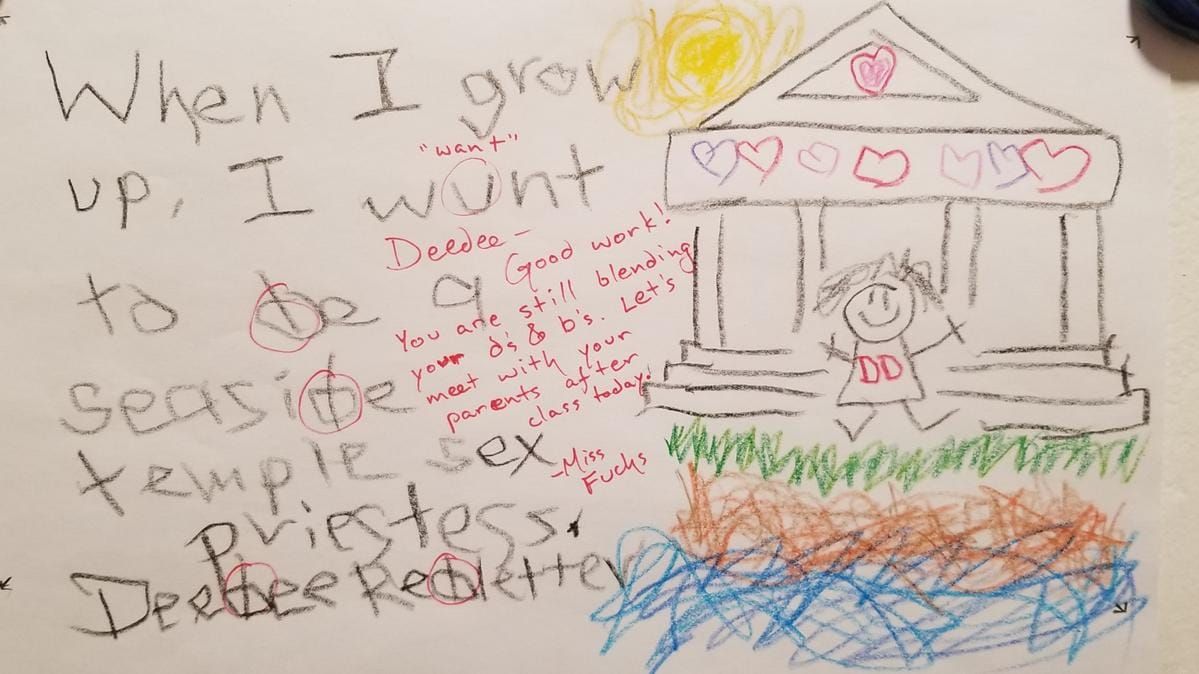 When I grow
up, I wunt
"want"
to be a
seaside
temple sex
priestess.
Deedee Redletter
Deedee -
Good work!
You are still blending
your d's & b's. Let's
meet with your
parents after
class today!
-Miss
Fuchs
DD